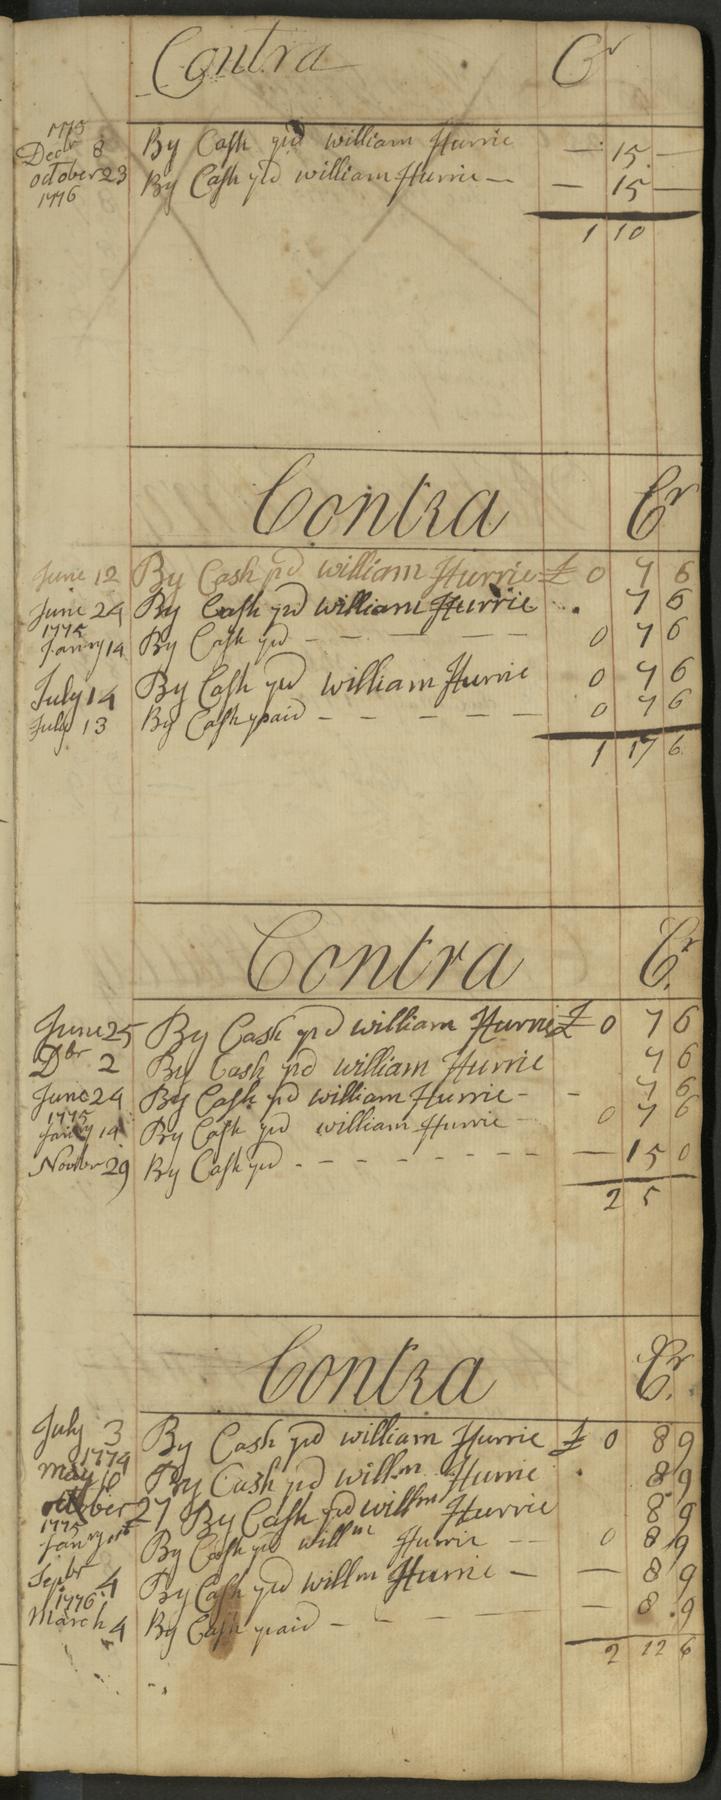 Contra Cr
1775
Decbr 8 By Cash pd william Hurrie — 15 —
october 23 By Cash pd william Hurrie — — 15 —
1776
1 10
Contra Cr
June 12 By Cash pd william Hurrie £ 0 7 6
June 24 By Cash pd william Hurrie . 7 6
1775
Janry 14 By Cash pd — — — — 0 7 6
July 14 By Cash pd william Hurrie 0 7 6
July 13 By Cash paid — — — — — 0 7 6
1 17 6
Contra Cr.
June 25 By Cash pd william Hurrie £ 0 7 6
Dbr 2 By Cash pd william Hurrie 7 6
June 24 By Cash pd william Hurrie - - 7 6
1775
Janry 14 By Cash pd william Hurrie 0 7 6
Novbr 29 By Cash pd - - - - - - - - — 15 0
2 5
Contra Cr.
July 3 By Cash pd william Hurrie £ 0 8 9
1774
may By Cash pd willm Hurrie . 8 9
october 27 By Cash pd willm Hurrie 8 9
1775
Janry By Cash pd willm Hurrie — — 0 8 9
Sepbr 4 By Cash pd willm Hurrie — — 8 9
1776
March 4 By Cash paid — — — — — 8 .9
2 12 6